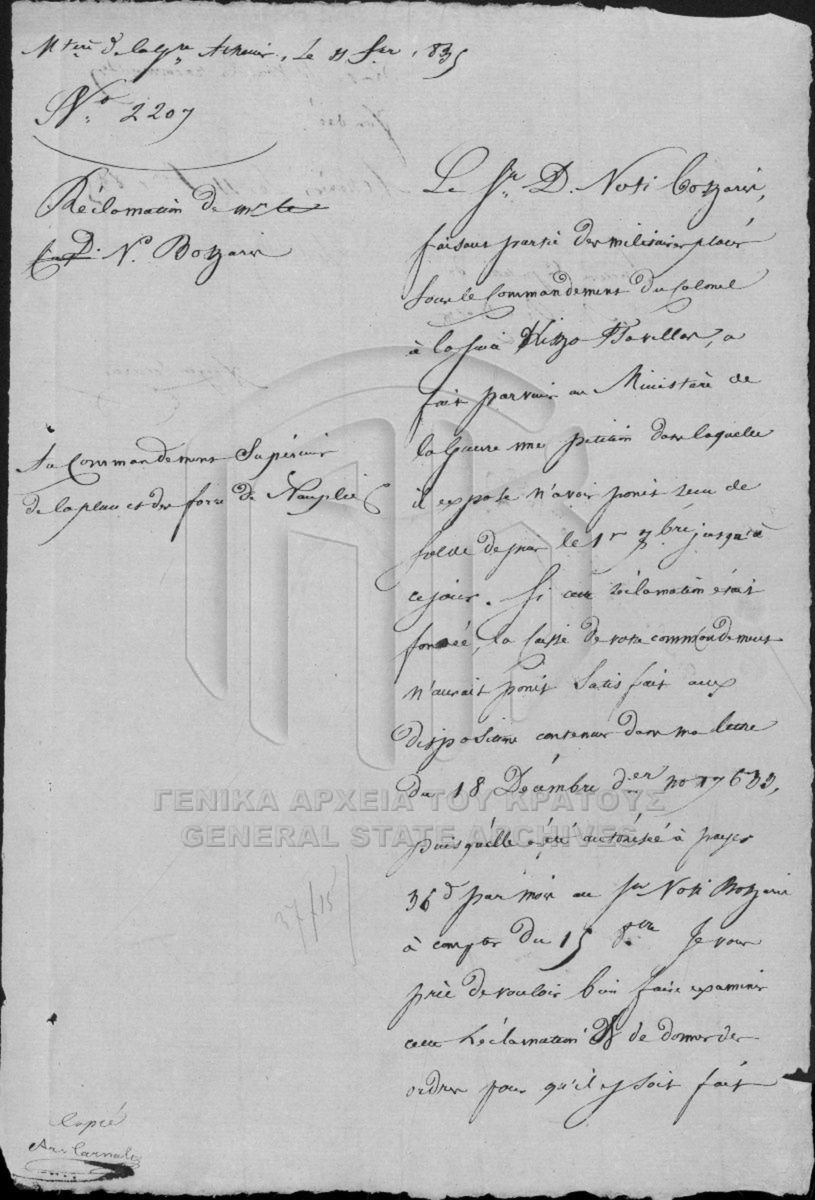 Mtère de la Gre Athènes, Le 11 Jer 1835
No. 2207
Réclamation de
D. No. Botzaris
Au Commandement Supérieur
de la place et des forts de Nauplie
Le Sr. D. Noti Botzaris,
faisant partie des militaires placés
sous le Commandement du Colonel
à la suite Kizzo Tzavellas, a
fait parvenir au Ministère de
la Guerre une pétition dans laquelle
il expose n'avoir point reçu de
solde depuis le 1r 7.bre jusqu'à
ce jour. Si cette réclamation était
fondée, la caisse de votre commandement
n'aurait point satisfait aux
dispositions contenues dans ma lettre
du 18 Décembre der no 17633,
puisqu'elle a été autorisée à payer
36 d par mois au Sr Noti Botzaris
à compter du 15 8bre Je vous
prie de vouloir bien faire examiner
cette réclamation & de donner des
ordres pour qu'il y soit fait
37/15
Copié
ΓΕΝΙΚΑ ΑΡΧΕΙΑ ΤΟΥ ΚΡΑΤΟΥΣ
GENERAL STATE ARCHIVES